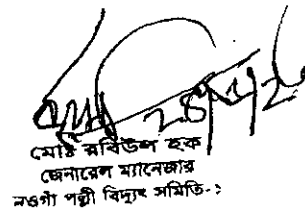 মোঃ রবিউল হক
জেনারেল ম্যানেজার
নওগাঁ পল্লী বিদ্যুৎ সমিতি-১